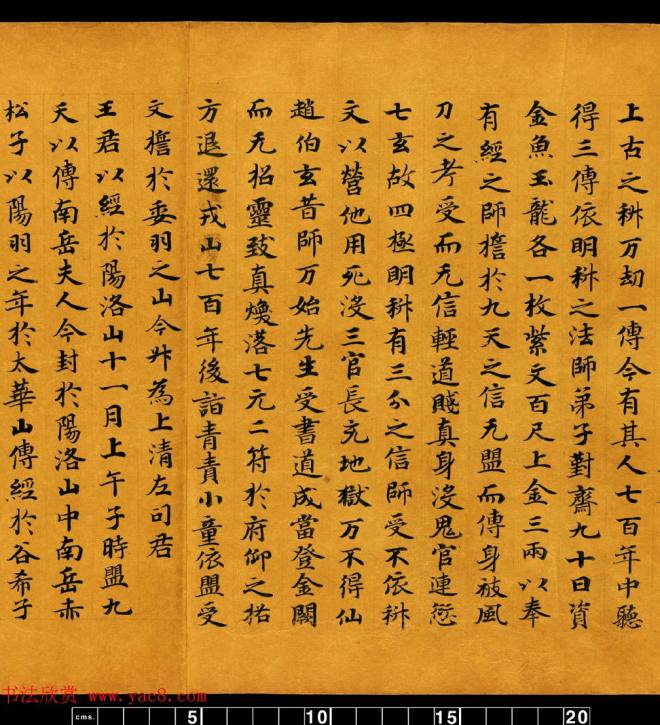 上古之科万劫一傳今有其人七百年中聽
得三傳依明科之法師弟子對齋九十日資
金魚玉龍各一枚紫文百尺上金三兩以奉
有經之師擔於九天之信无盟而傳身被風
刀之考受而无信輕道賤真身沒鬼官連愆
七玄故四極明科有三分之信師受不依科
文以營他用死沒三官長充地獄万不得仙
趙伯玄昔師万始先生受書道成當登金闕
而无招靈致真煥落七元二符於府仰之格
方退還戎山七百年後詣青責小童依盟受
文擔於委羽之山今升為上清左司君
王君以經於陽洛山十一月上午子時盟九
天以傳南岳夫人今封於陽洛山中南岳赤
松子以陽羽之年於太華山傳經於谷希子
书法欣赏 www.yac8.com
cms. 5 10 15 20